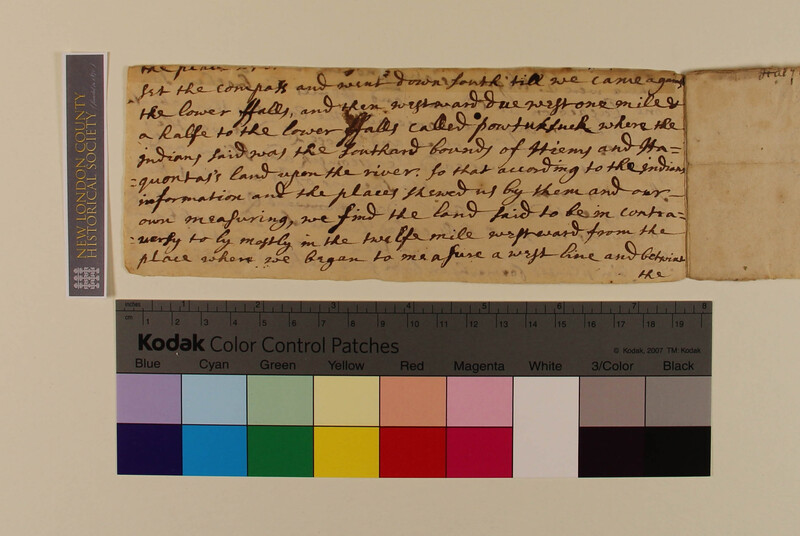 the place
set the compass and went down south till we came against
the lower ffalls, and then westward due west one mile &
a halfe to the lower ffalls called powtukfuck where the
indians said was the southard bounds of
quontas's land upon the river. so that according to the indians
information and the places shewed us by them and our-
own measuring, we find the land said to be in contra=
=versy to ly mostly in the twelfe mile westward from the
place where we began to measure a west line and betwixt
the
NEW LONDON COUNTY
HISTORICAL SOCIETY
inches 1 2 3 4 5 6 7 8
cm 1 2 3 4 5 6 7 8 9 10 11 12 13 14 15 16 17 18 19
Kodak Color Control Patches
© Kodak, 2007 TM: Kodak
Blue Cyan Green Yellow Red Magenta White 3/Color Black